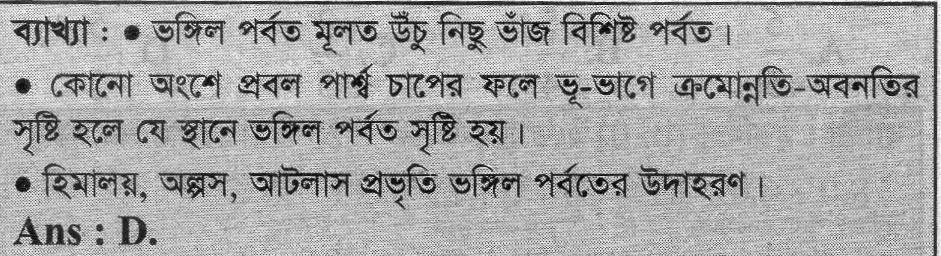 ব্যাখ্যা : ● ভঙ্গিল পর্বত মূলত উঁচু নিচু ভাঁজ বিশিষ্ট পর্বত।
● কোনো অংশে প্রবল পার্শ্ব চাপের ফলে ভূ-ভাগে ক্রমোন্নতি-অবনতির
সৃষ্টি হলে যে স্থানে ভঙ্গিল পর্বত সৃষ্টি হয়।
● হিমালয়, অল্পস, আটলাস প্রভৃতি ভঙ্গিল পর্বতের উদাহরণ।
Ans : D.